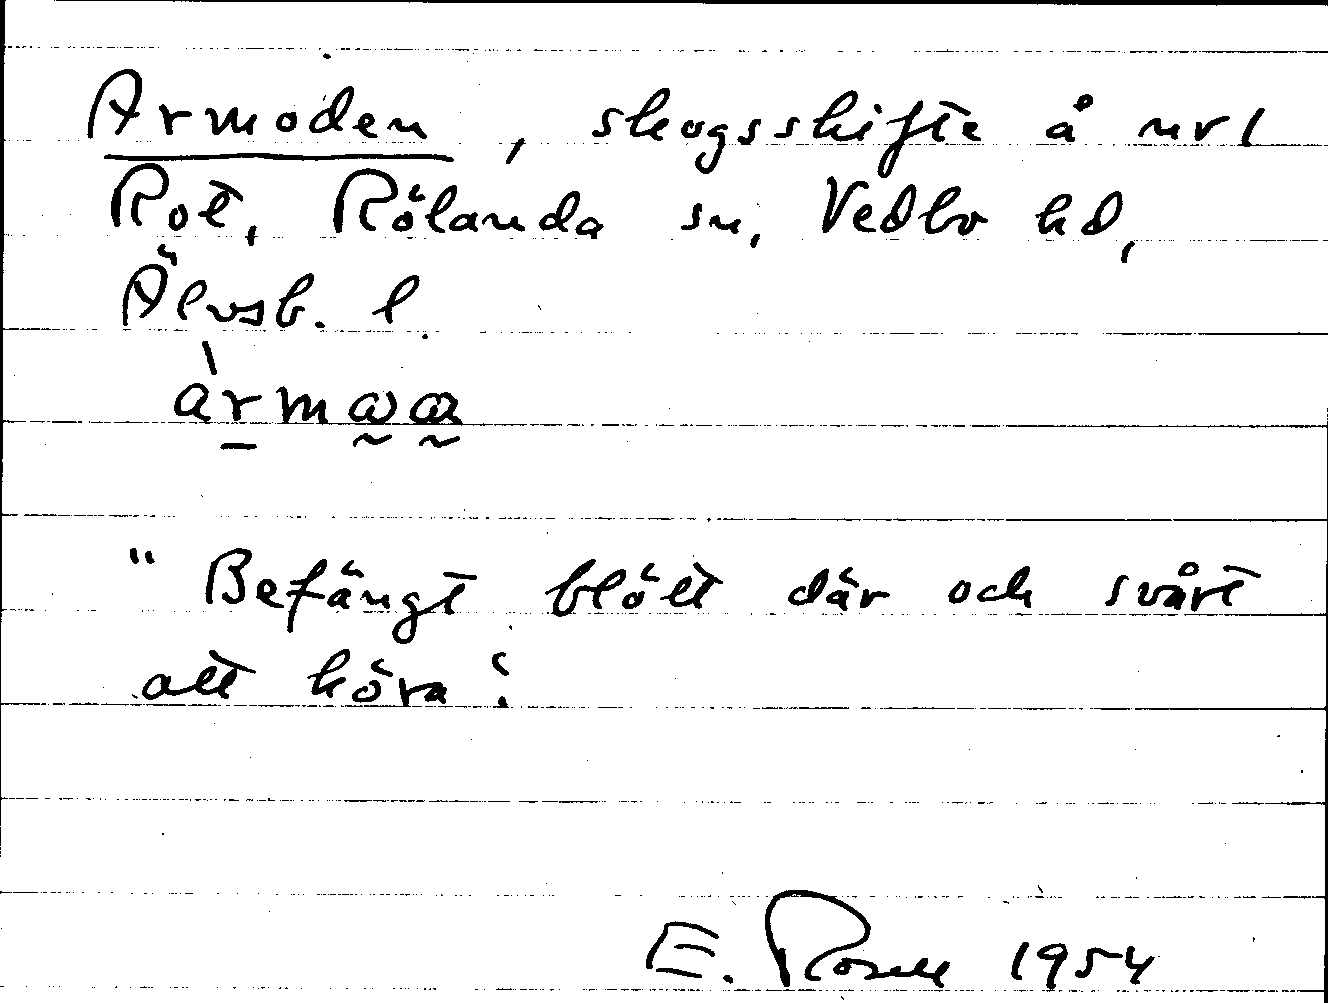 Armoden, skogsskifte å nr 1
Rot, Rölanda sn, Vedbo hd,
Älvsb. l.
"Befängt blött där och svårt
att köra".
E. Rosell 1954